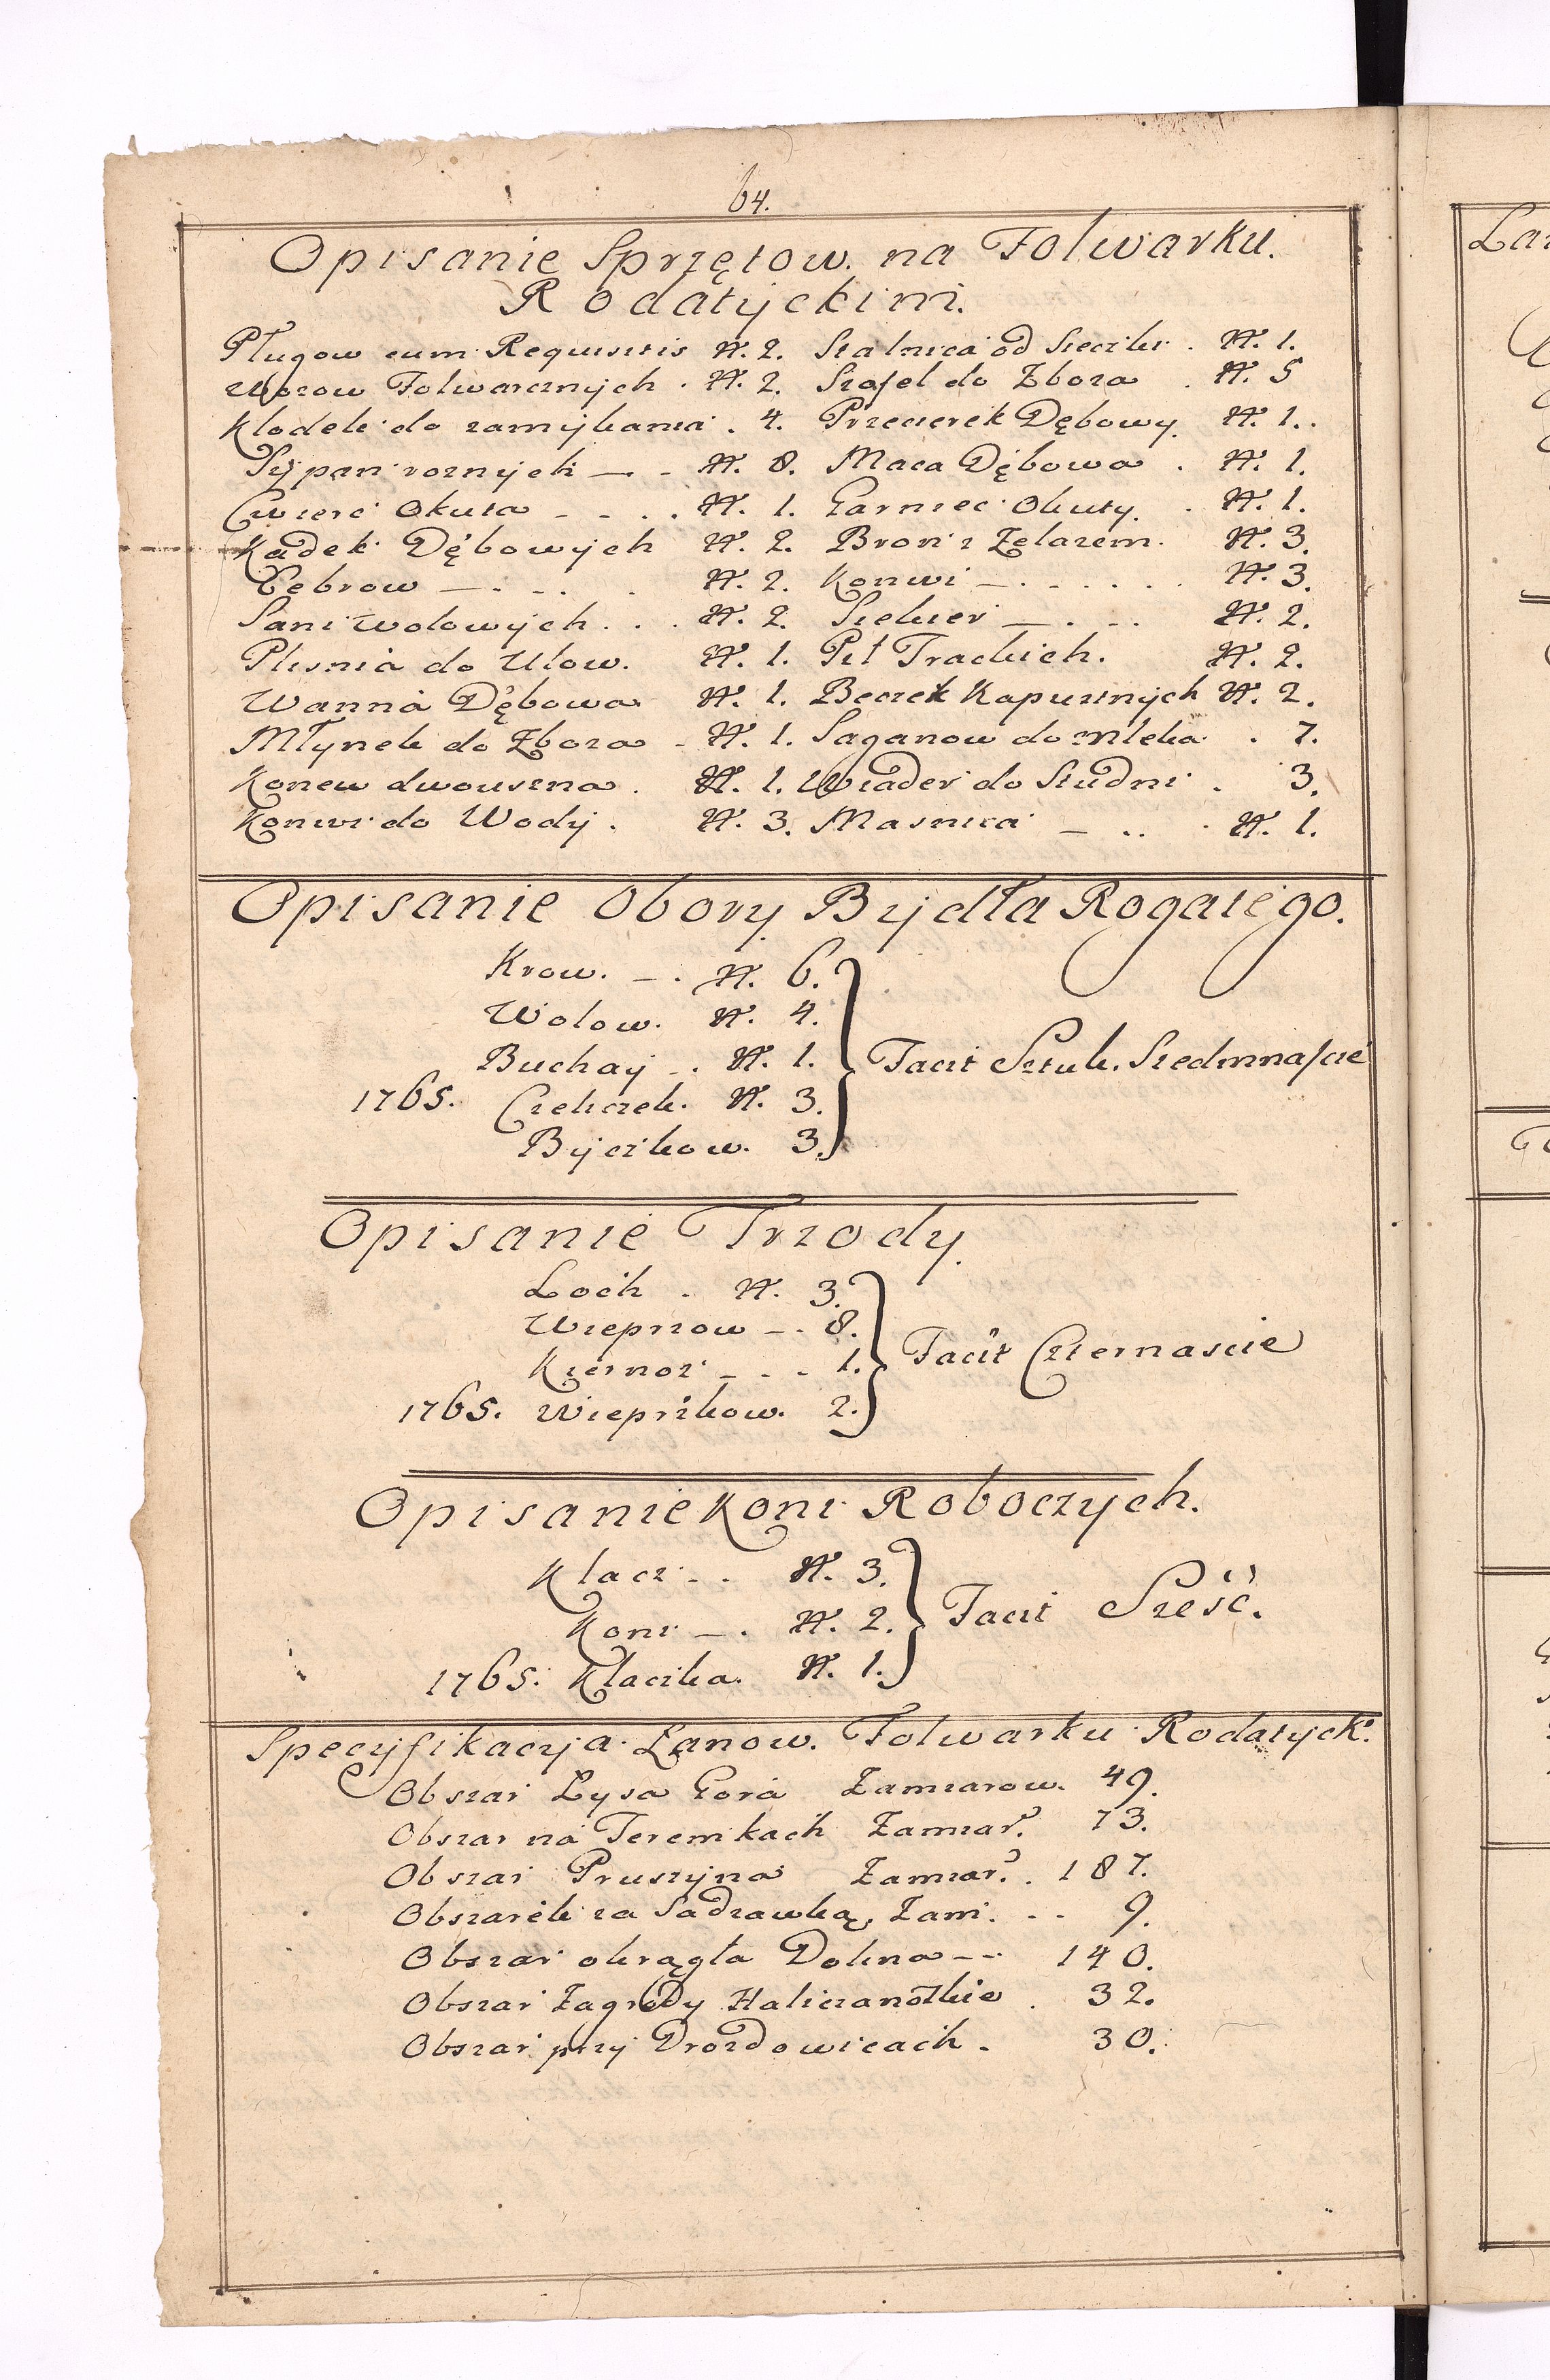 64.
Opisanie Sprzętow. na Folwarku.
Rodatyckim.
Pługow cum Requisitis N. 2. Stalnica od Sieczki. N. 1.
Wozow Folwarcznych. N. 2. Szafel do Zboza. N. 5
Klodek do zamykania. 4. Przecierek Dębowy N. 1..
Sypan roznych — - N. 8. Maca Dębowa. N. 1.
Cwierc Okuta - - . . N. 1. Garniec Okuty. N. 1.
Kadek Dębowych N. 2. Bron z Zelazem. N. 3.
Cebrow — . - . . N. 2. Konwi — . - . . . N. 3.
Sani Wolowych . . . N. 2. Siekier — . - . N. 2.
Plesnia do Ulow. N. 1. Pił Trackich. N. 2.
Wanna Dębowa N. 1. Beczek Kapustnych N. 2.
Młynek do Zboza - N. 1. Saganow do mleka . 7.
Konew dwouszna. N. 1. Wiader do Studni . 3.
Konwi do Wody. N. 3. Masnica — .. . N. 1.
Opisanie Obory Bydła Rogatego.
Krow. — . N. 6.
Wolow. N. 4.
Buchay - . N. 1. Facit Sztuk. Siedmnascie
1765. Cieliczek. N. 3.
Byczkow. 3.
Opisanie Trzody.
Loch . N. 3.
Wieprzow — . 8.
Kiernoz - - - 1. Facit Czternascie
1765. Wieprzkow. 2.
Opisanie Koni Roboczych.
Klacz - . N. 3.
Koni — . N. 2. Facit Sześć.
1765. Klaczka. N. 1.
Specyfikacyja Łanow. Folwarku Rodatyck:
Obszar Łysa Gora Zamiarow. 49.
Obszar na Teremkach Zamiar. 73.
Obszar Pruszyna Zamiar. . 187.
Obszarek za Sadzawką, Zam. . - 9.
Obszar okrągła Dolina - - 140.
Obszar Zagrody Haliczanskie . 32.
Obszar przy Drozdowicach. 30.